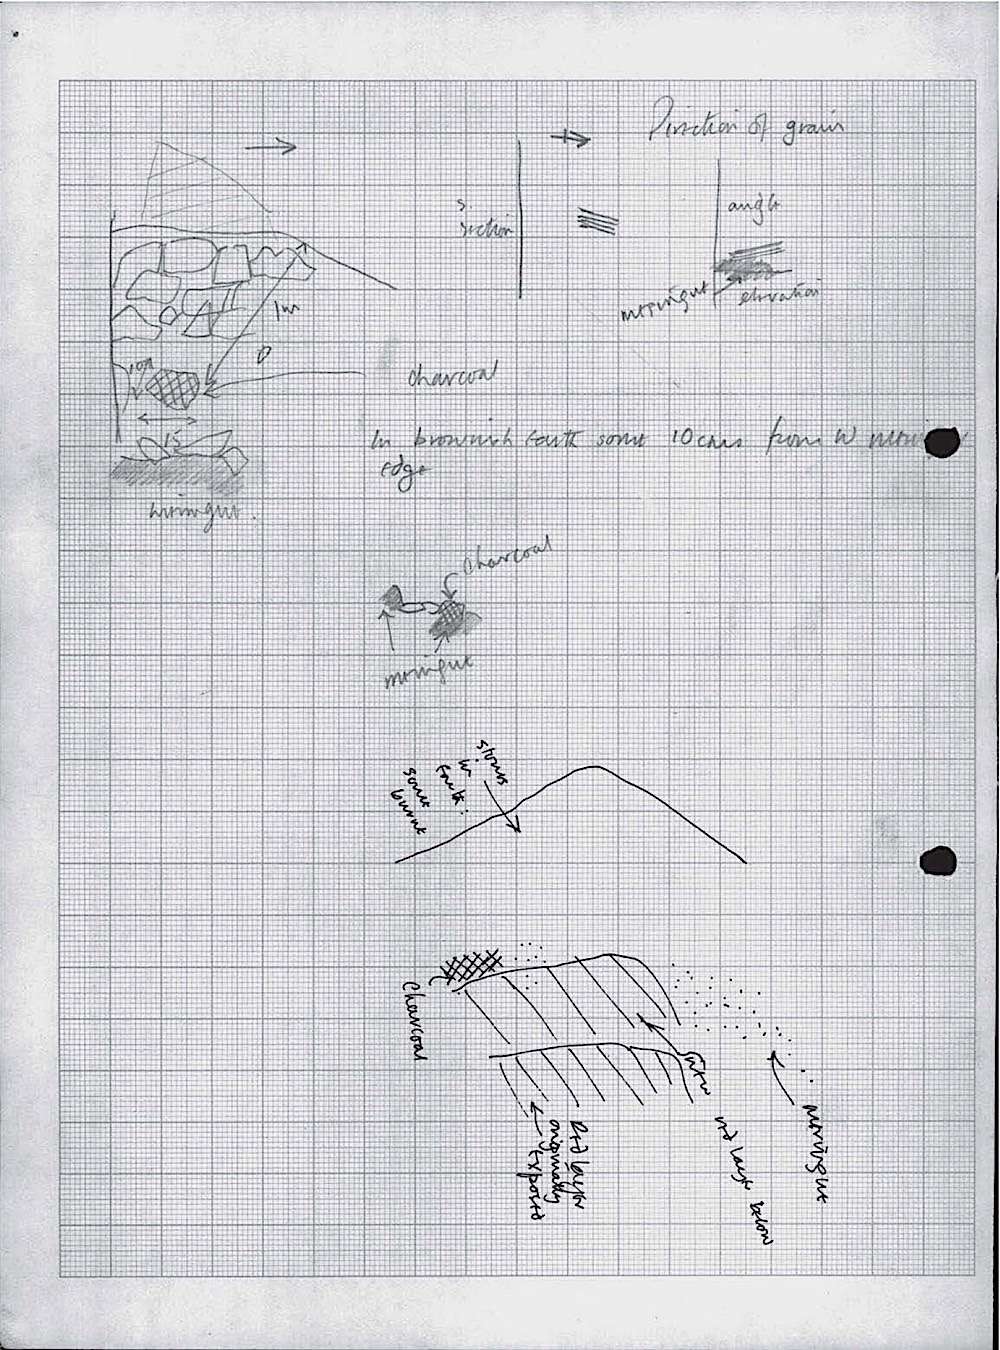 Direction of grain
S.
section
angle
elevation
1m
charcoal
15
In brownish earth some 10cms from W
edge
charcoal
stones
in
earth.
some
burnt
charcoal
Red layer
originally
exposed
new
red layer below